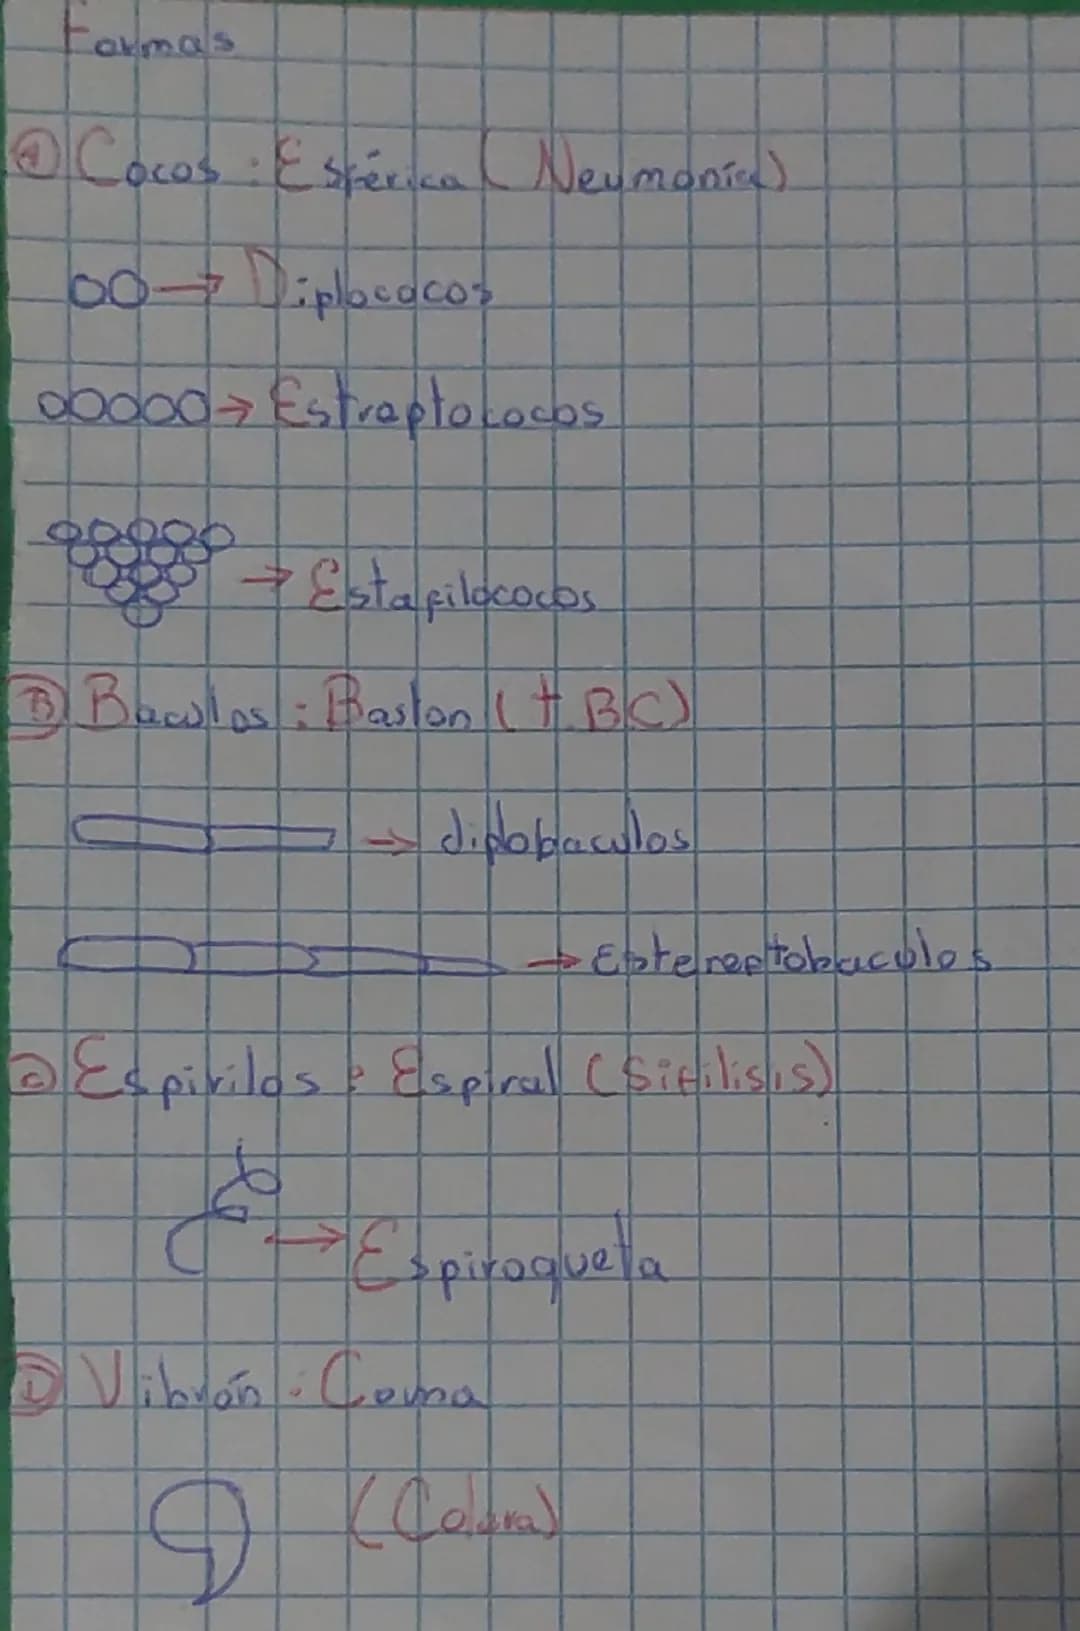 Formas
A) Cocos : Esférica (Neumonía)
→ Diplococos
→ Estreptococos
→ Estafilococos
B) Baculos : Baston (TBC)
→ diplobaculos
→ Estereptobaculos
C) Espirilos : Espiral (Sifilisis)
→ Espiroqueta
D) Vibrón : Coma
(Colera)